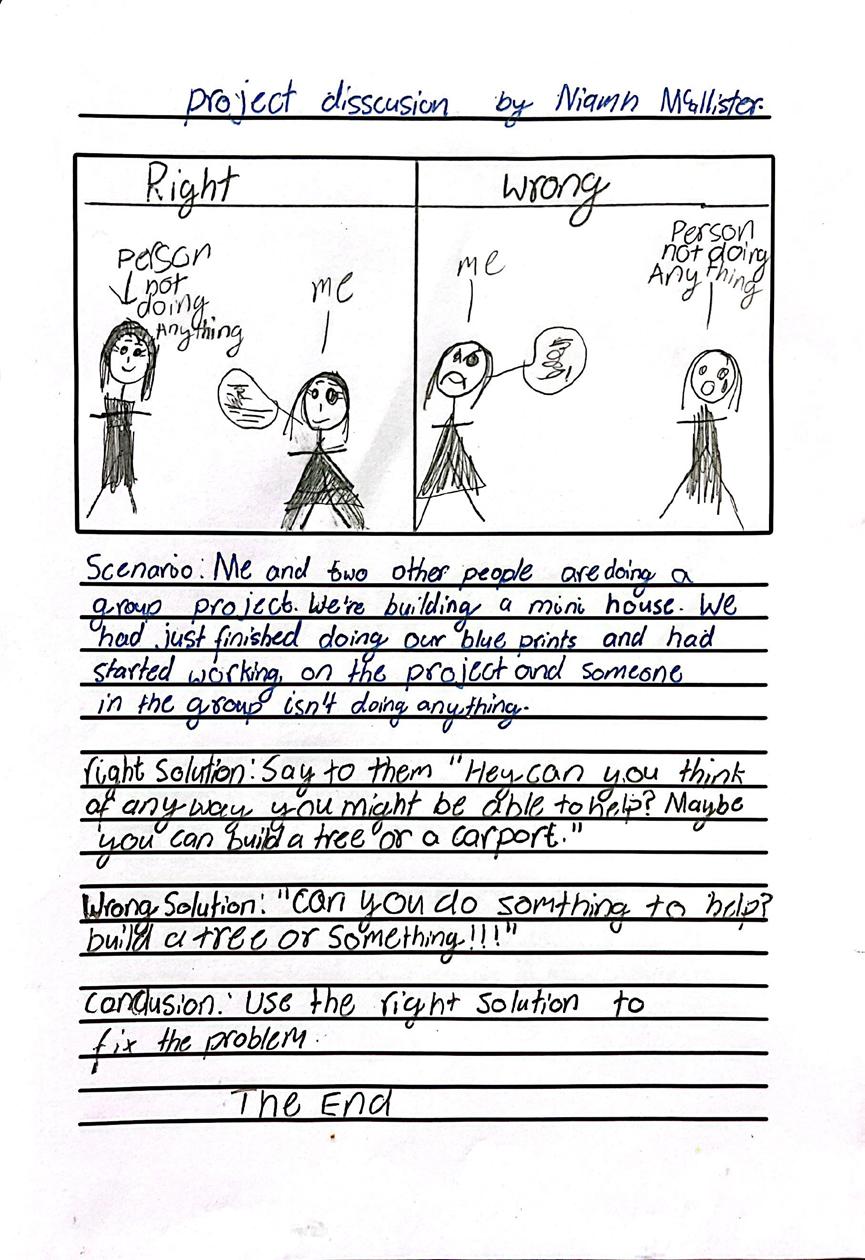 project disscusion by Niamh McAllister.
Right
Wrong
person
not
doing
Anything
me
me
Person
not doing
Any thing
Scenario: Me and two other people are doing a
group project. We're building a mini house. We
had just finished doing our blue prints and had
started working on the project and someone
in the group isn't doing anything.
right Solution: Say to them "Hey can you think
of any way you might be able to help? Maybe
you can build a tree or a carport."
Wrong Solution: "Can you do somthing to help?
build a tree or something!!!"
conclusion: Use the right solution to
fix the problem.
The End